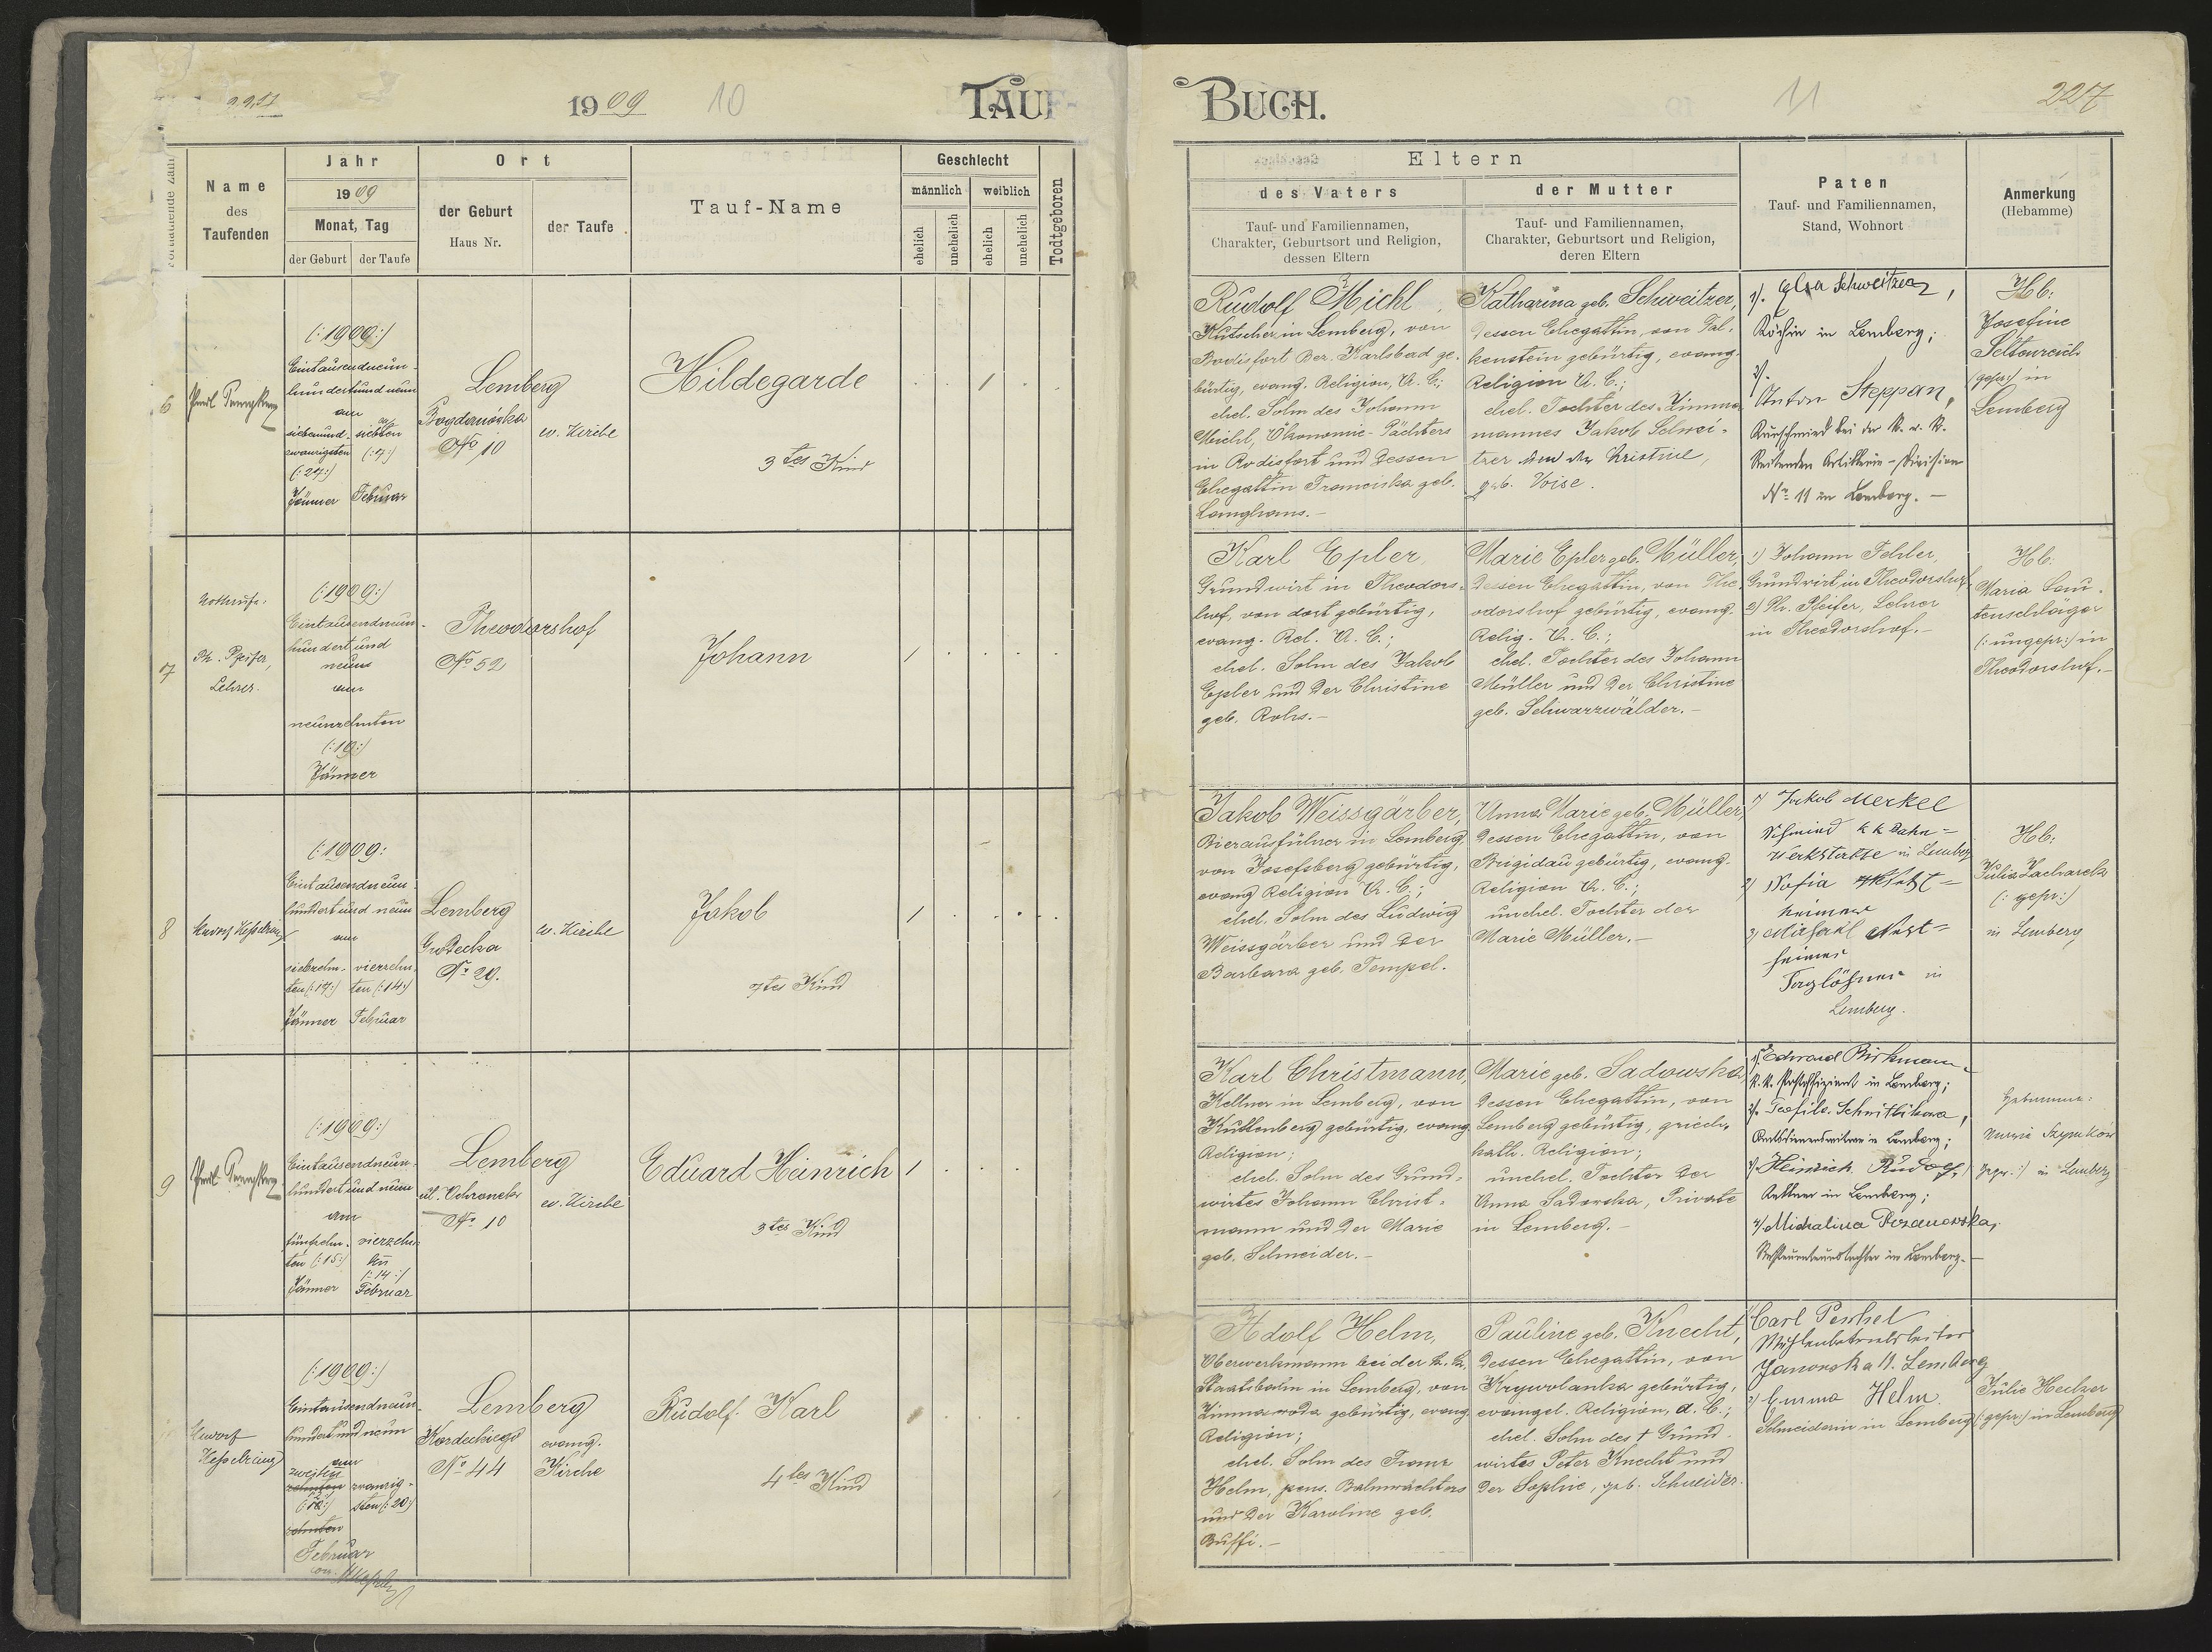 1909 10 TAUF-
Fortlaufende Zahl
Name
des
Taufenden
Jahr
1909
Monat, Tag
der Geburt der Taufe
Ort
der Geburt
Haus Nr.
der Taufe
Tauf-Name
Geschlecht
männlich weiblich
ehelich unehelich ehelich unehelich
Todtgeboren
6
(:1909:)
Eintausendneun-
hundertundneun
am
siebenund- siebten
zwanzigsten (:7:)
(:27:)
Jänner Februar
Lemberg
Bogdanówka
No 10
ev. Kirche
Hildegarde
3tes Kind
1
7
Nottaufe:
Ph. Pfeifer,
Lehrer.
(:1909:)
Eintausendneun-
hundert und
neun
am
neunzehnten
(:19:)
Jänner
Theodorshof
No 52
Johann
1
8
(:1909:
Eintausendneun-
hundert und neun
am
siebzehn- vierzehn-
ten (:17:) ten (:14:)
Jänner Februar
Lemberg
Grodecka
No 29.
ev. Kirche
Jakob
7tes Kind
1
9
(:1909:)
Eintausendneun-
hundert und neun
am
fünfzehn- vierzehn-
ten (:15:) ten
(:14:)
Jänner Februar
Lemberg
ul. Ochronek
No 10
ev. Kirche
Eduard Heinrich
3tes Kind
1
Kesselring
(:1909:)
Eintausendneun-
hundert und neun
am
zweiten
zehnten zwanzig-
sten (:20:)
zehnten
Februar
Lemberg
Kordeckiego
No 44
evang.
Kirche
Rudolf Karl
4tes Kind
BUCH. 11 227
Eltern
des Vaters
Tauf- und Familiennamen,
Charakter, Geburtsort und Religion,
dessen Eltern
der Mutter
Tauf- und Familiennamen,
Charakter, Geburtsort und Religion,
deren Eltern
Paten
Tauf- und Familiennamen,
Stand, Wohnort
Anmerkung
(Hebamme)
Rudolf Michl
Kutscher in Lemberg, von
Rodisfort Bez. Karlsbad ge-
bürtig, evang. Religion, A. C.;
ehel. Sohn des Johann
Michl, Ökonomie-Pächters
in Rodisfort und dessen
Ehegattin Franciska geb.
Langhans.-
Katharina geb. Schweitzer,
dessen Ehegattin, von Fal-
kenstein gebürtig, evang.
Religion A. C.;
ehel. Tochter des Zimmer-
mannes Jakob Schwei-
tzer und der Kristine,
geb. Voise.
1). Elsa Schweitzer,
Köchin in Lemberg;
2).
Anton Steppan,
Kurschmied bei der k. u. k.
Reitenden Artillerie-Division
No 11 in Lemberg.-
Hb:
Josefine
Seltenreich
(gepr:) in
Lemberg
Karl Epler,
Grundwirt in Theodors-
hof, von dort gebürtig,
evang. Rel. A. C.;
ehel. Sohn des Jakob
Epler und der Christine
geb. Rohs.-
Marie Epler geb. Müller,
dessen Ehegattin, von The-
odorshof gebürtig, evang.
Relig. A. C.;
ehel. Tochter des Johann
Müller und der Christine
geb. Schwarzwälder.-
1) Johann Fehler,
Grundwirt in Theodorshof
2) Ph. Pfeifer, Lehrer
in Theodorshof.-
Hb:
Maria Lau-
tenschläger
(:ungepr:) in
Theodorshof.-
Jakob Weissgärber,
Bierausführer in Lemberg,
von Josefsberg gebürtig,
evang Religion A. C.;
ehel. Sohn des Ludwig
Weissgärber und der
Barbara geb. Tempel.
Anna Marie geb. Müller,
dessen Ehegattin, von
Brigidau gebürtig, evang.
Religion A. C.;
unehel. Tochter der
Marie Müller.-
1) Jakob Merkel
Schmied k k Bahn-
werkstätte in Lemberg
2) Sofia
heimer
3)
heimer
Taglöhner in
Lemberg.
Hb:
Julia Zacharek
(:gepr:)
in Lemberg
Karl Christmann,
Kellner in Lemberg, von
Kuttenberg gebürtig, evang
Religion;
ehel. Sohn des Grund-
wirtes Johann Christ-
mann und der Marie
geb. Schneider.-
Marie geb. Sadowska,
dessen Ehegattin, von
Lemberg gebürtig, griech.
kath. Religion;
unehel. Tochter der
Anna Sadowska, Private
in Lemberg.-
1) Edward Birkmann
k. k. in Lemberg;
2). Teofila Schnitlikowa,
in Lemberg;
3). Heinrich Rudolf,
Kellner in Lemberg;
4) Michalina
in Lemberg.-
Hebamme:
Maria
(gepr.:) in Lemberg
Adolf Helm,
Oberwerkmann bei der k. k.
Staatsbahn in Lemberg, von
Zimnawoda gebürtig, evang.
Religion;
ehel. Sohn des Franz
Helm, pens. Bahnwächters
und der Karoline geb.
Buffi.-
Pauline geb. Knecht,
dessen Ehegattin, von
Krywolanka gebürtig,
evangel. Religion, A. C.;
ehel. Sohn des + Grund-
wirtes Peter Knecht und
der Sophie, geb. Schneider.
1) Carl Peschel
Mühlenbetriebsleiter
Janowska 11. Lemberg
2) Emma Helm
Schneiderin in Lemberg
Julie Hecker
(gepr:) in Lemberg